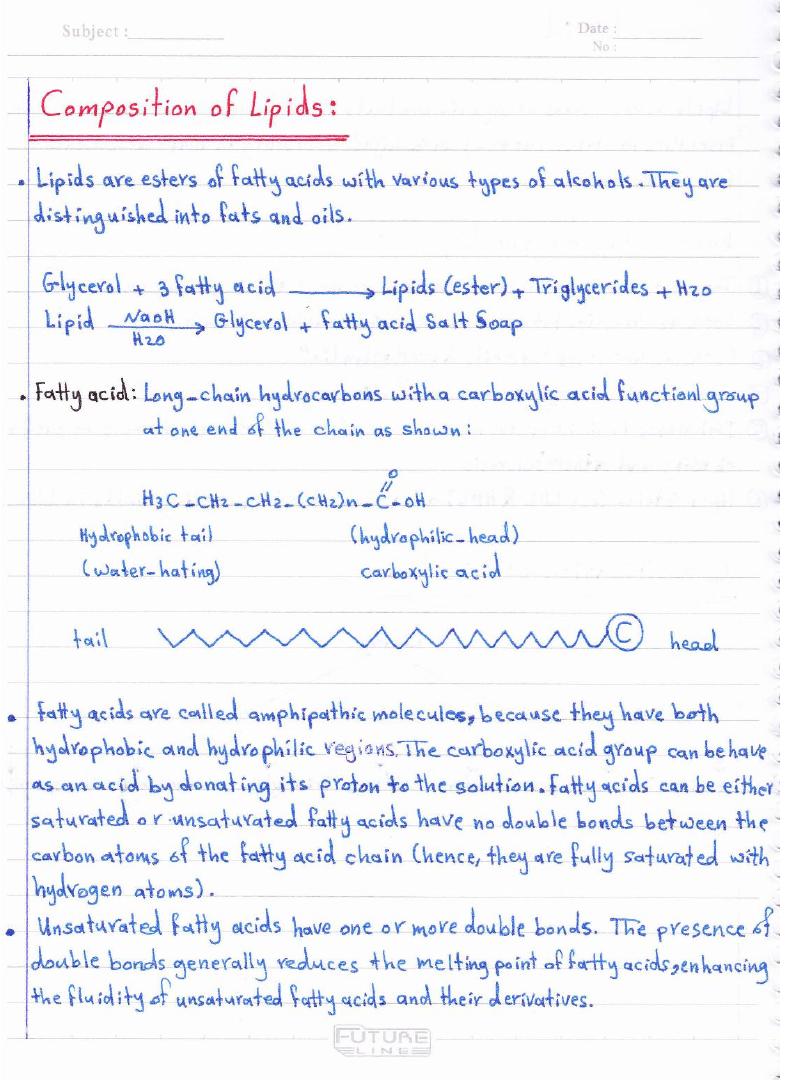 Subject :
Date :
No :
Composition of Lipids:
• Lipids are esters of fatty acids with various types of alcohols. They are
distinguished into fats and oils.
Glycerol + 3 fatty acid ⟶ Lipids (ester) + Triglycerides + H2O
Lipid NaOH/H2O ⟶ Glycerol + fatty acid Salt Soap
• Fatty acid: Long-chain hydrocarbons with a carboxylic acid functionl group
at one end of the chain as shown:
O
//
H3C-CH2-CH2-(CH2)n-C-OH
Hydrophobic tail (hydrophilic-head)
(water-hating) carboxylic acid
tail C head
• Fatty acids are called amphipathic molecules, because they have both
hydrophobic and hydrophilic regions. The carboxylic acid group can behave
as an acid by donating its proton to the solution. Fatty acids can be either
saturated or unsaturated fatty acids have no double bonds between the
carbon atoms of the fatty acid chain (hence, they are fully saturated with
hydrogen atoms).
• Unsaturated fatty acids have one or more double bonds. The presence of
double bonds generally reduces the melting point of fatty acids, enhancing
the fluidity of unsaturated fatty acids and their derivatives.
FUTURE
LINE